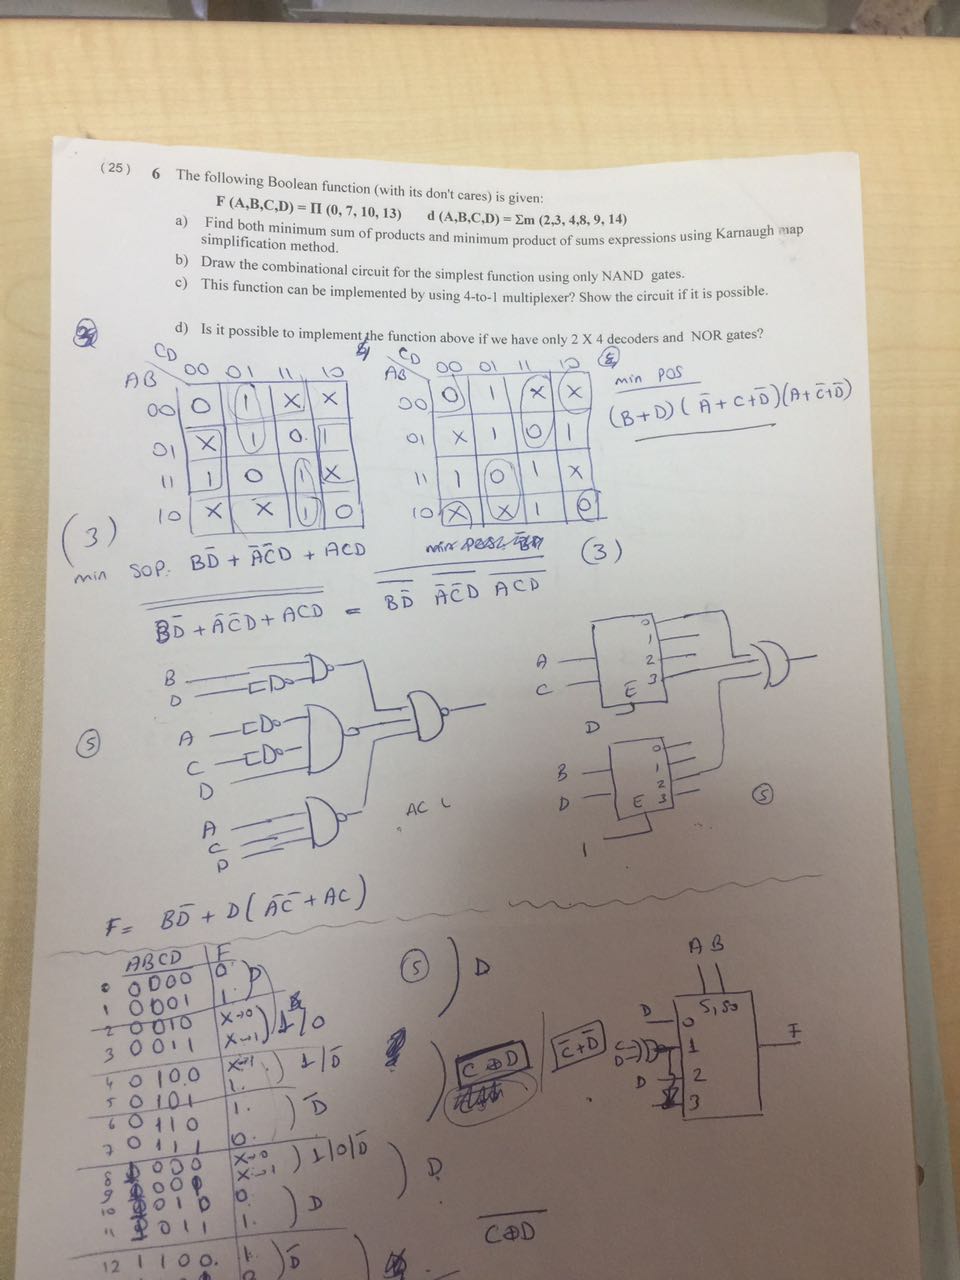 (25) 6 The following Boolean function (with its don't cares) is given:
F (A,B,C,D) = Π (0, 7, 10, 13) d (A,B,C,D) = Σm (2,3, 4,8, 9, 14)
a) Find both minimum sum of products and minimum product of sums expressions using Karnaugh map
simplification method.
b) Draw the combinational circuit for the simplest function using only NAND gates.
c) This function can be implemented by using 4-to-1 multiplexer? Show the circuit if it is possible.
d) Is it possible to implement the function above if we have only 2 X 4 decoders and NOR gates?
CD
AB 00 01 11 10
00 0 1 X X
01 X 1 0 1
11 1 0 1 X
10 X X 1 0
CD
AB 00 01 11 10
00 0 1 X X
01 X 1 0 1
11 1 0 1 X
10 X X 1 0
min POS
(B+D)(A̅+C+D̅)(A+C̅+D̅)
(3)
min SOP: BD̅ + A̅C̅D + ACD
(3)
BD̅ + A̅C̅D + ACD = BD̅ A̅C̅D ACD
B
D
A
C
D
A
C
D
(5)
AC
A
C
D
0
1
2
3
E̅
B
D
1
0
1
2
3
E
(5)
F = BD̅ + D(A̅C̅ + AC)
ABCD F
0 0000 0
1 0001 1 D
2 0010 X→0
3 0011 X→1 1/0
4 0100 X→1
5 0101 1 1/D̅
6 0110 1
7 0111 0 D̅
8 000 X→0
9 00 X→1 1/0/D̅
10 010 0
11 011 1 D
12 1100 1 D̅
(5) D
C⊕D
C̅+D̅
D
C⊕D
A B
S1 S0
D 0
C
D 1
D 2
3
F